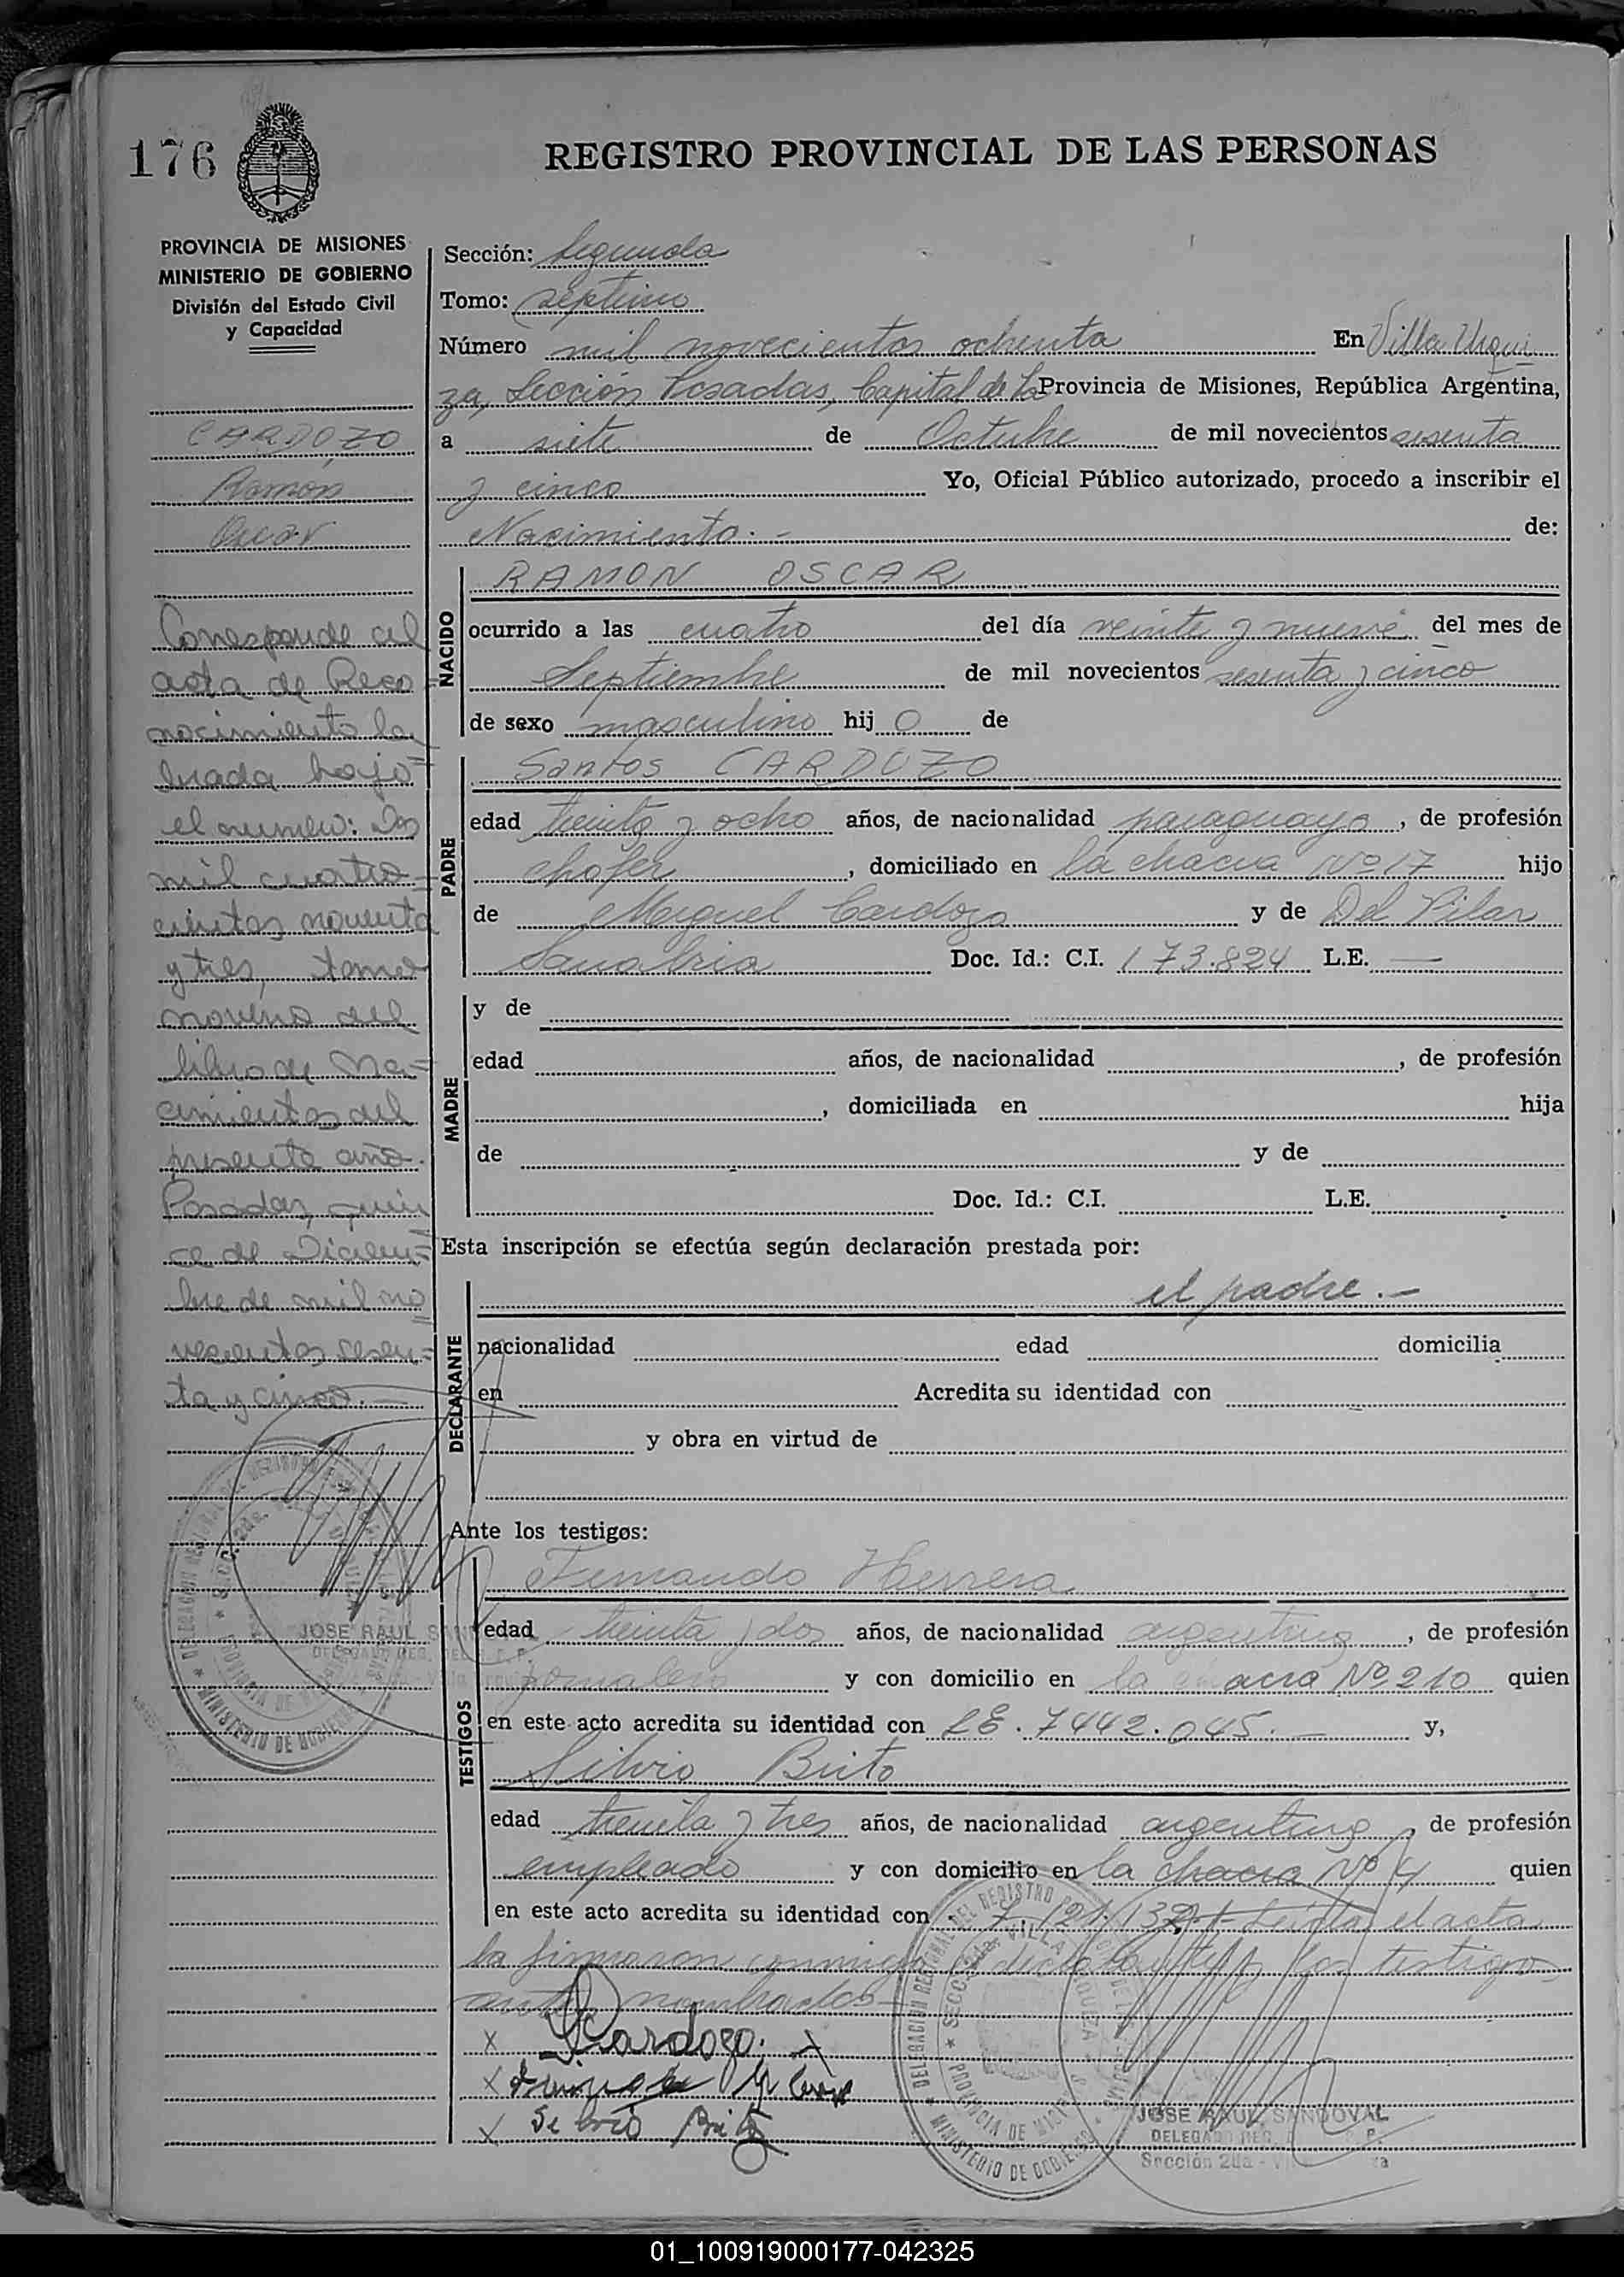 176
REGISTRO PROVINCIAL DE LAS PERSONAS
PROVINCIA DE MISIONES
MINISTERIO DE GOBIERNO
División del Estado Civil
y Capacidad
CARDOZO
Ramón
Oscar
Corresponde al
acta de Reco
nocimiento la
brada bajo
el numero: Dos
mil cuatro
cientos noventa
y tres, tomo
noveno del
libro de Na=
cimientos del
presente año.
Posadas, quin
ce de Diciem=
bre de mil no
vecientos sesen=
ta y cinco.—
JOSE RAUL
Sección: Segunda
Tomo: septimo
Número mil novecientos ochenta En Villa Urqui
za, Sección Posadas, Capital de la Provincia de Misiones, República Argentina,
a siete de Octubre de mil novecientos sesenta
y cinco Yo, Oficial Público autorizado, procedo a inscribir el
Nacimiento.- de:
NACIDO
RAMON OSCAR
ocurrido a las cuatro del día veinte y nueve del mes de
Septiembre de mil novecientos sesenta y cinco
de sexo masculino hij o de
PADRE
Santos CARDOZO
edad treinta y ocho años, de nacionalidad paraguayo, de profesión
chofer, domiciliado en la chacra Nº 17 hijo
de Miguel Cardozo y de Del Pilar
Sanabria Doc. Id.: C.I. 173.824 L.E. —
MADRE
y de
edad años, de nacionalidad , de profesión
, domiciliada en hija
de y de
Doc. Id.: C.I. L.E.
Esta inscripción se efectúa según declaración prestada por:
DECLARANTE
el padre.—
nacionalidad edad domicilia
en Acredita su identidad con
y obra en virtud de
Ante los testigos:
TESTIGOS
Fernando Herrera
edad treinta y dos años, de nacionalidad argentino, de profesión
jornalero y con domicilio en la chacra Nº 210 quien
en este acto acredita su identidad con LE. 7442.045.— y,
Silvio Brito
edad treinta y tres años, de nacionalidad argentino, de profesión
empleado y con domicilio en la chacra Nº 4 quien
en este acto acredita su identidad con 7.121.132.- Leída el acta
la firmaron conmigo el declarante y los testigos
antes nombrados
x SCardozo. x
x
x Silvio Brito
JOSE RAUL SANDOVAL
DELEGADO REG.
Sección 2da -
01_100919000177-042325